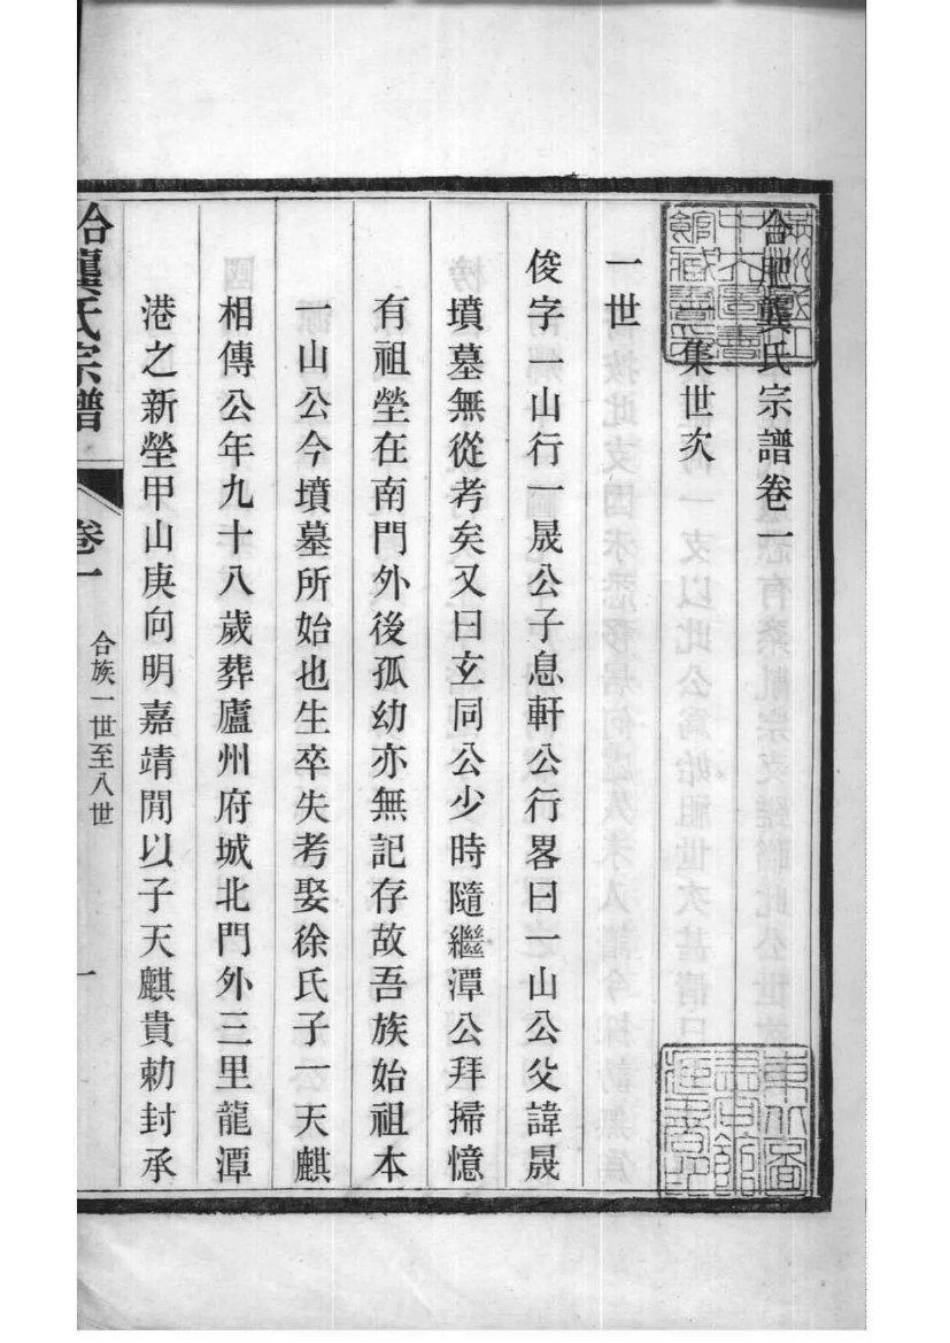 合肥龔氏宗譜卷一
集世次
一世
俊字一山行一晟公子息軒公行畧曰一山公父諱晟
墳墓無從考矣又曰玄同公少時隨繼潭公拜掃憶
有祖塋在南門外後孤幼亦無記存故吾族始祖本
一山公今墳墓所始也生卒失考娶徐氏子一天麒
相傳公年九十八歲葬廬州府城北門外三里龍潭
港之新塋甲山庚向明嘉靖閒以子天麒貴勅封承
合龔氏宗譜
卷一
合族一世至八世
一